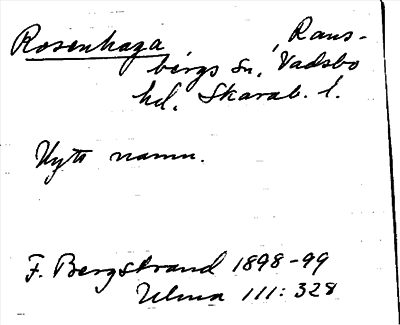 Rosenhaga, Rans-
bergs sn, Vadsbo
hd, Skarab. l.
Nytt namn.
F. Bergstrand 1898-99
Ulma 111: 328